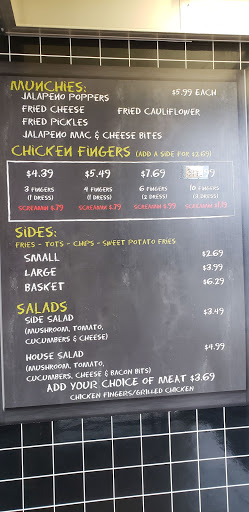 MUNCHIES:
JALAPENO POPPERS $5.99 EACH
FRIED CHEESE FRIED CAULIFLOWER
FRIED PICKLES
JALAPENO MAC & CHEESE BITES
CHICKEN FINGERS (ADD A SIDE FOR $2.69)
$4.39 $5.49 $7.69
3 FINGERS 4 FINGERS 6 FINGERS 10 FINGERS
(1 DRESS) (1 DRESS) (2 DRESS)
SCREAMIN $.79 SCREAMIN $.79 SCREAMIN $.99 SCREAMIN
SIDES:
FRIES - TOTS - CHIPS - SWEET POTATO FRIES
SMALL $2.69
LARGE $3.99
BASKET $6.29
SALADS
SIDE SALAD $3.49
(MUSHROOM, TOMATO,
CUCUMBERS & CHEESE)
HOUSE SALAD $4.99
(MUSHROOM, TOMATO,
CUCUMBERS, CHEESE & BACON BITS)
ADD YOUR CHOICE OF MEAT $3.69
CHICKEN FINGERS/GRILLED CHICKEN